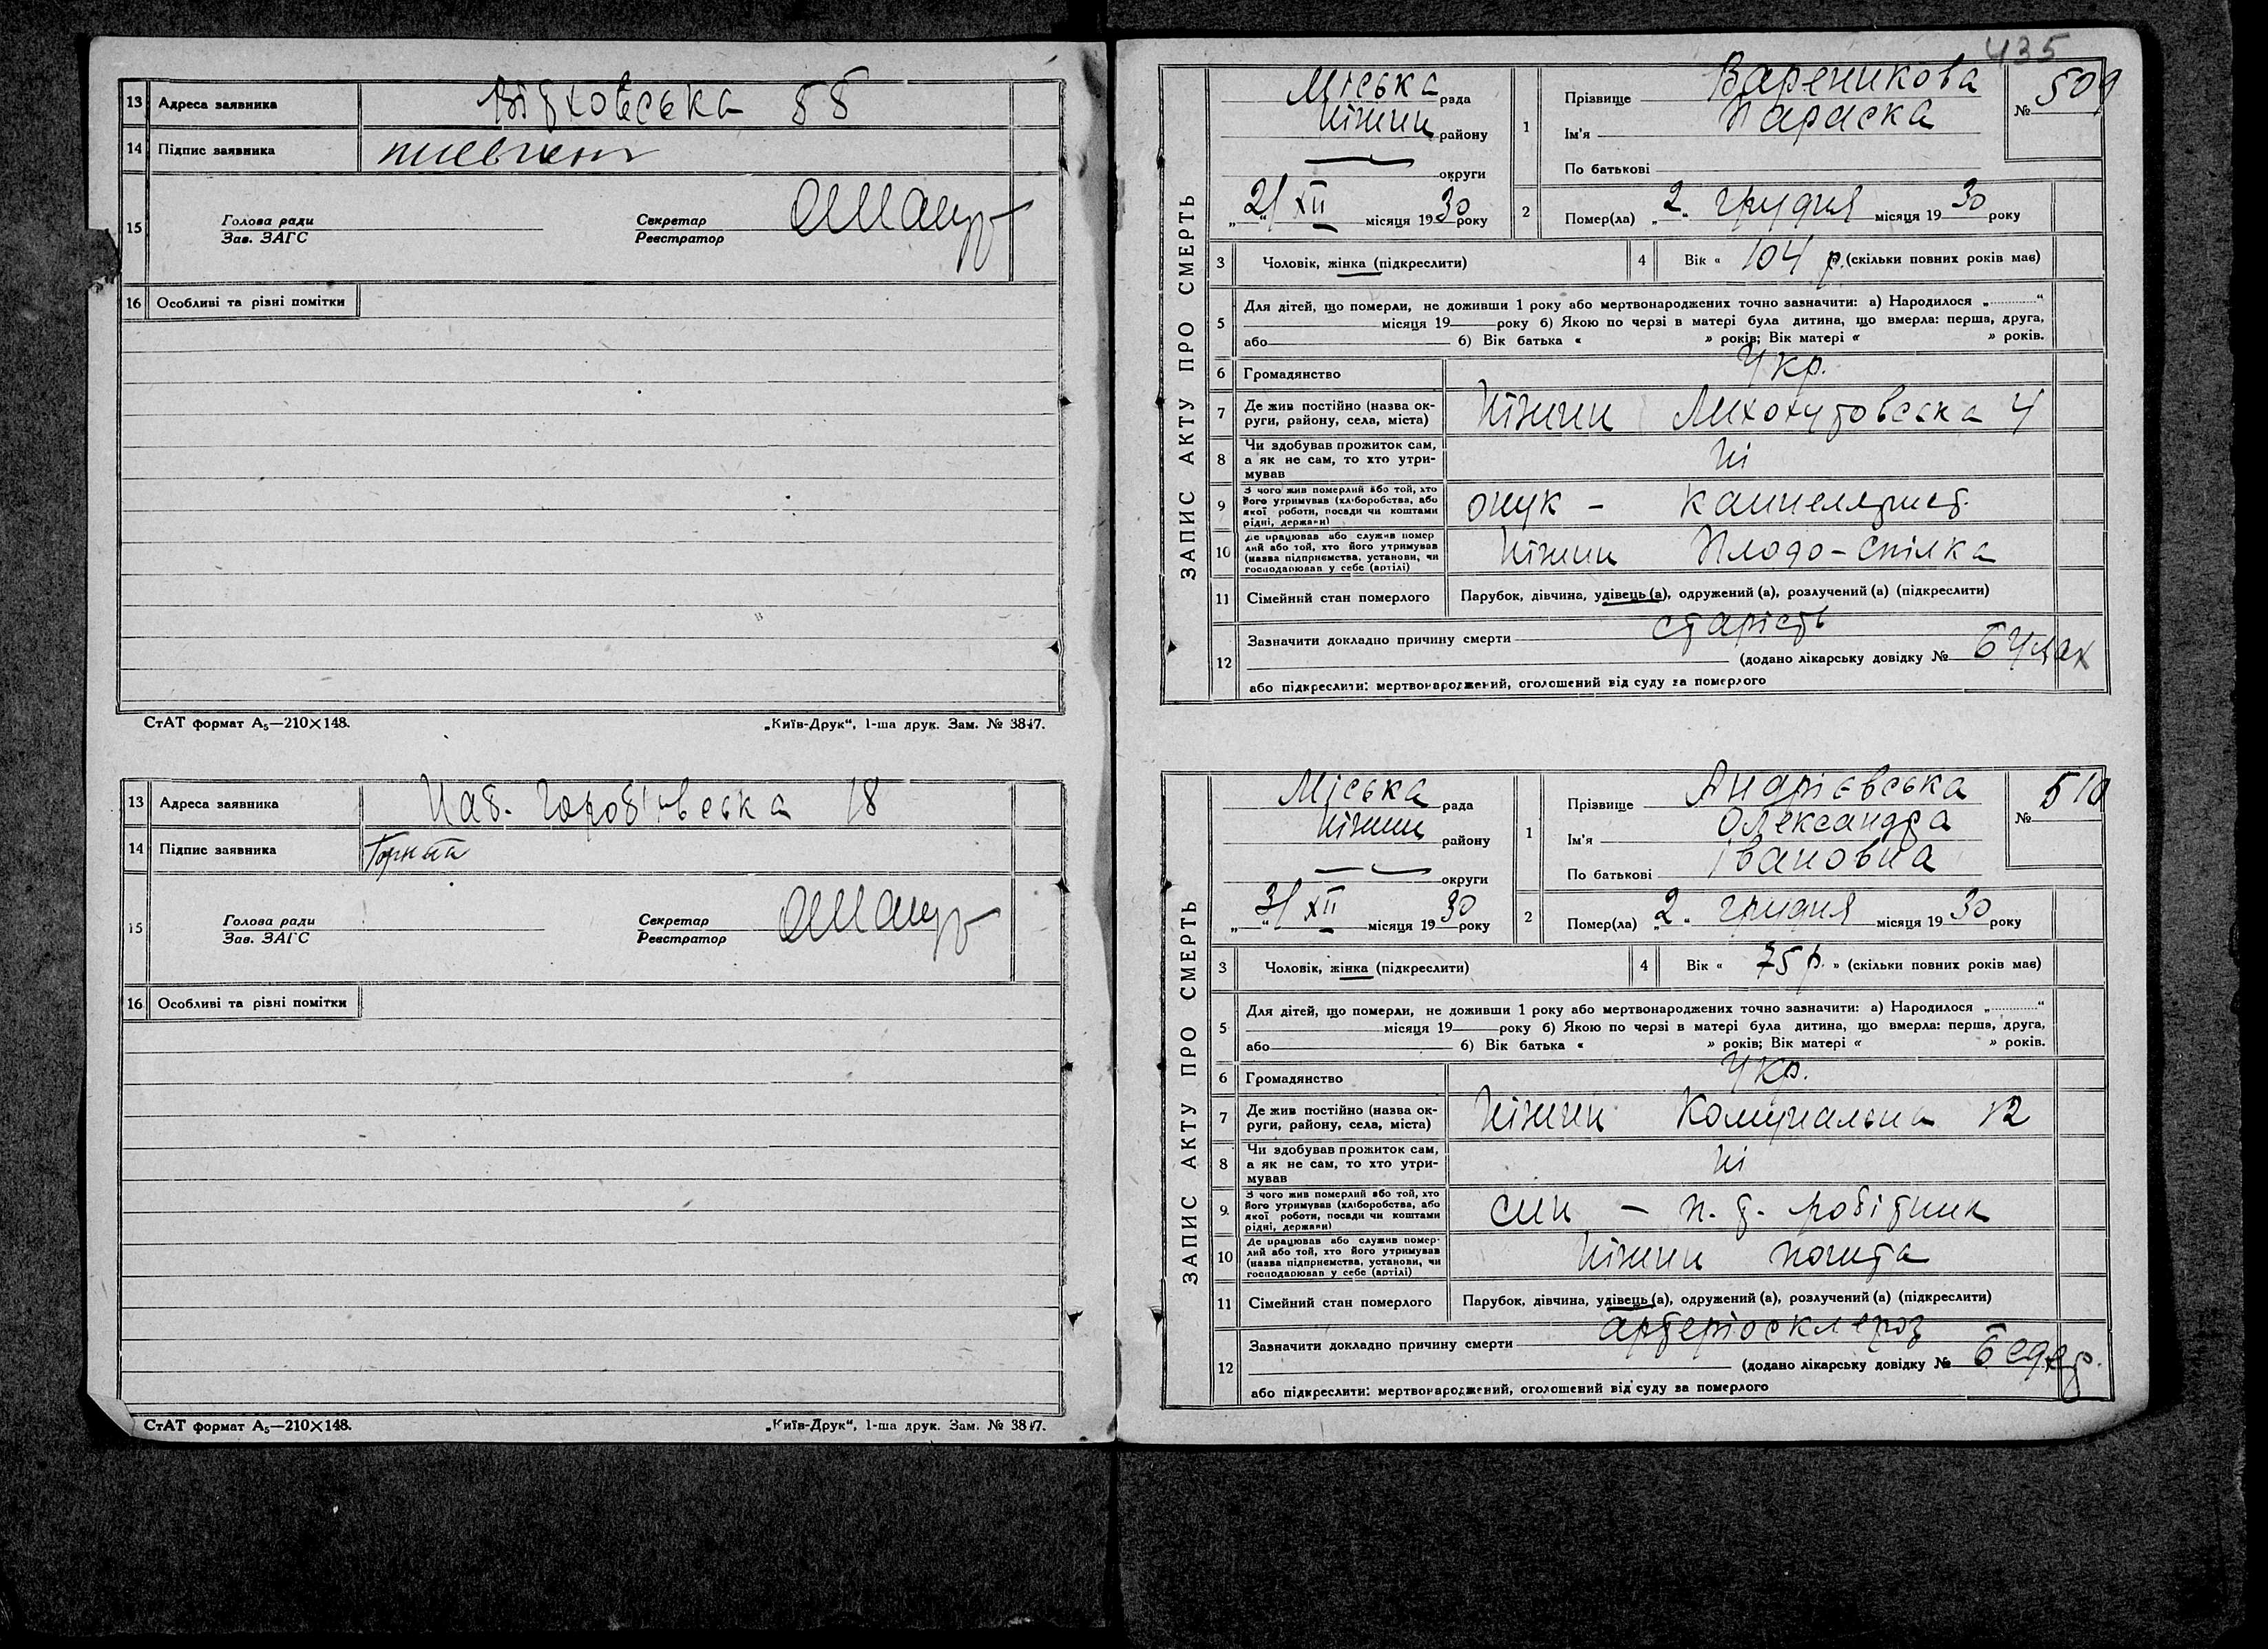 13 Адреса заявника Вітховська 55
14 Підпис заявника
15
Голова ради Секретар
Зав. ЗАГС Реєстратор
16 Особливі та різні помітки
СтАТ формат А₅—210×148. „Київ-Друк“, 1-ша друк. Зам. № 3847.
13 Адреса заявника 18
14 Підпис заявника
15
Голова ради Секретар
Зав. ЗАГС Реєстратор
16 Особливі та різні помітки
СтАТ формат А₅—210×148. „Київ-Друк“, 1-ша друк. Зам. № 3847.
435
ЗАПИС АКТУ ПРО СМЕРТЬ
Міська рада
Ніжин району
округи
„2“ XII місяця 1930 року
1 Прізвище Вареникова
Ім'я Параска
По батькові
№ 509
2 Помер(ла) „2“ грудня місяця 1930 року
3 Чоловік, жінка (підкреслити)
4 Вік « 104 р. (скільки повних років мав)
5 Для дітей, що померли, не доживши 1 року або мертвонароджених точно зазначити: а) Народилося „ “
місяця 19 року б) Якою по черзі в матері була дитина, що вмерла: перша, друга,
або б) Вік батька « » років; Вік матері « » років.
6 Громадянство Укр.
7 Де жив постійно (назва ок-
руги, району, села, міста) Ніжин 4
8 Чи здобував прожиток сам,
а як не сам, то хто утри-
мував Ні
9 З чого жив померлий або той, хто
його утримував (хліборобства, або
якої роботи, посади чи коштами
рідні, держави) онук – канцелярист.
10 Де працював або служив помер
лий або той, хто його утримував
(назва підприємства, установи, чи
господарював у себе (артілі) Ніжин Плодо-спілка
11 Сімейний стан померлого Парубок, дівчина, удівець (а), одружений (а), розлучений (а) (підкреслити)
12 Зазначити докладно причину смерти старість
(додано лікарську довідку № Булах
або підкреслити: мертвонароджений, оголошений від суду за померлого
ЗАПИС АКТУ ПРО СМЕРТЬ
Міська рада
Ніжин району
округи
„3“ XII місяця 1930 року
1 Прізвище Андрієвська
Ім'я Олександра
По батькові Івановна
№ 510
2 Помер(ла) „2“ грудня місяця 1930 року
3 Чоловік, жінка (підкреслити)
4 Вік « 75 р. » (скільки повних років мав)
5 Для дітей, що померли, не доживши 1 року або мертвонароджених точно зазначити: а) Народилося „ “
місяця 19 року б) Якою по черзі в матері була дитина, що вмерла: перша, друга,
або б) Вік батька « » років; Вік матері « » років.
6 Громадянство Укр.
7 Де жив постійно (назва ок-
руги, району, села, міста) Ніжин Комунальна 12
8 Чи здобував прожиток сам,
а як не сам, то хто утри-
мував Ні
9. З чого жив померлий або той, хто
його утримував (хліборобства, або
якої роботи, посади чи коштами
рідні, держави) син – п. т. робітник
10 Де працював або служив помер-
лий або той, хто його утримував
(назва підприємства, установи, чи
господарював у себе (артілі) Ніжин пошта
11 Сімейний стан померлого Парубок, дівчина, удівець (а), одружений (а), розлучений (а) (підкреслити)
12 Зазначити докладно причину смерти артеріосклероз
(додано лікарську довідку №
або підкреслити: мертвонароджений, оголошений від суду за померлого